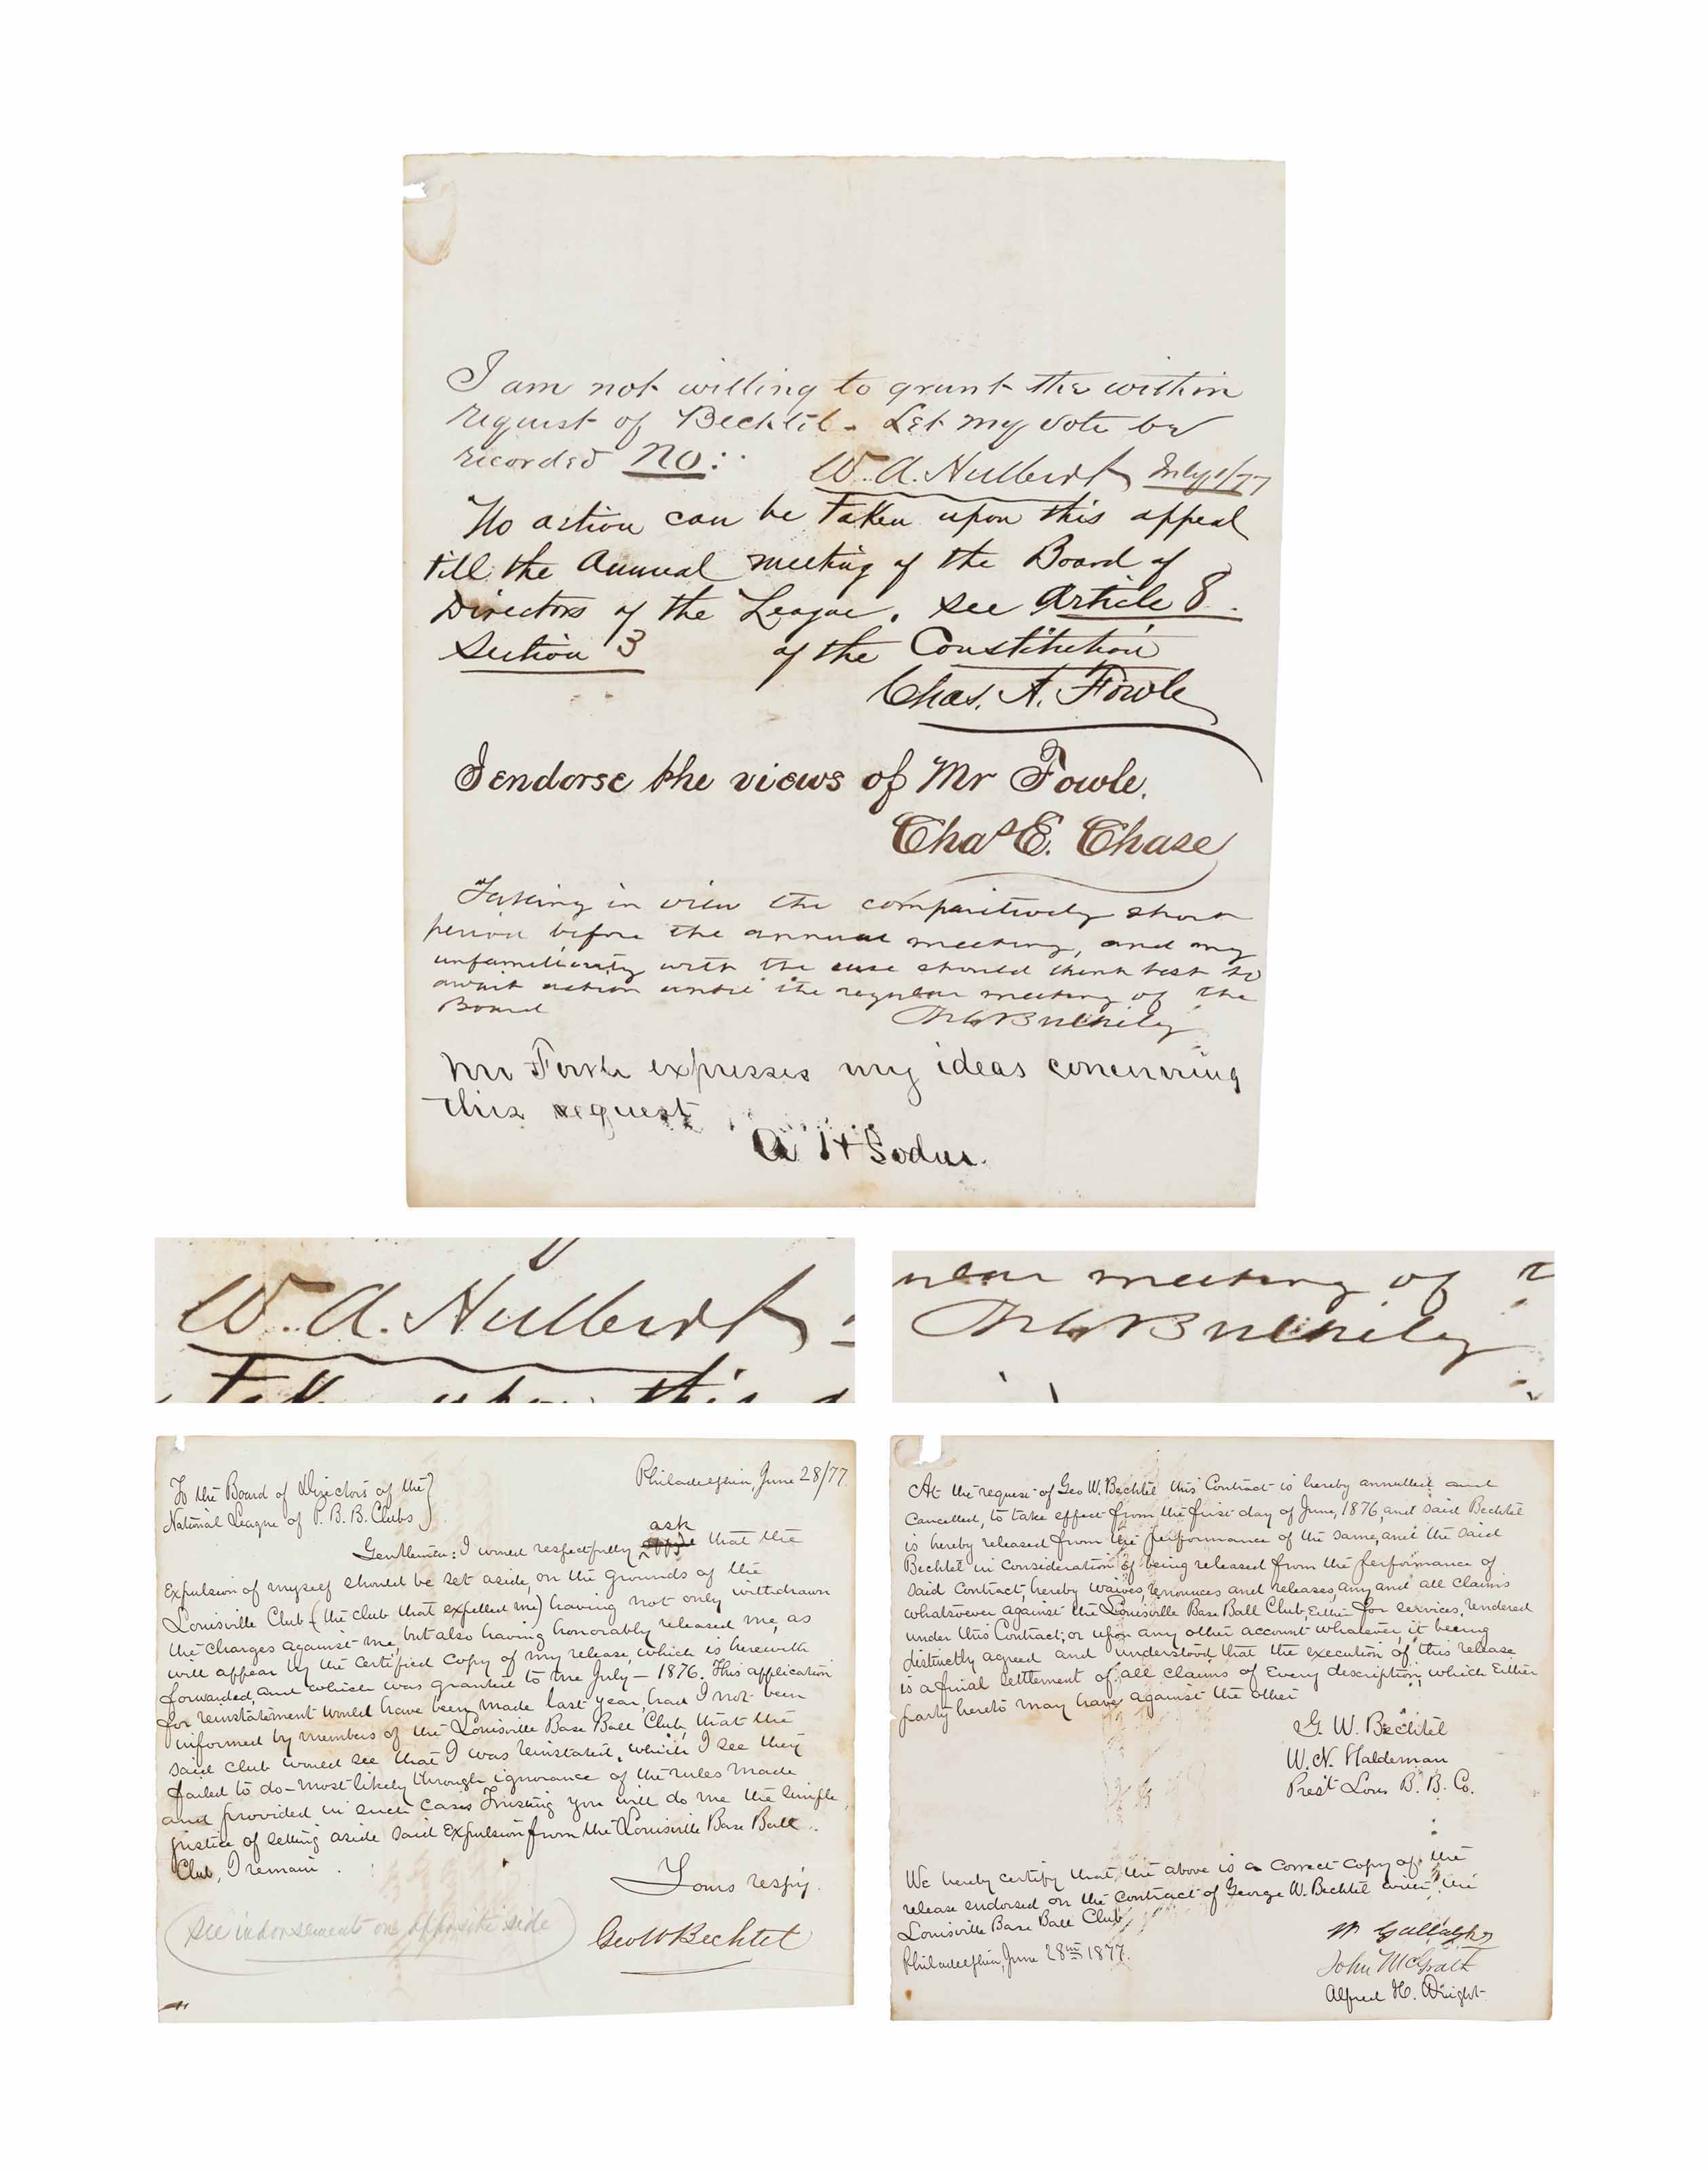 I am not willing to grant the within
request of Bechtel - Let my vote be
recorded no:
W. A. Hulbert July 1/77
No action can be taken upon this appeal
till the Annual meeting of the Board of
Directors of the League. see Article 8.
Section 3 of the Constitution
Chas. A. Fowle
I endorse the views of Mr Fowle.
Chas E. Chase
Taking in view the comparitively short
period before the annual meeting, and my
unfamiliarity with the case should think best to
await action until the regular meeting of the
Board
M G Bulkeley
Mr Fowle expresses my ideas concerning
this request
A H Soden.
W. A. Hulbert
taken upon this a
ular meeting of t
M G Bulkeley
Philadelphia, June 28/77
To the Board of Directors of the
National League of P. B. B. Clubs
ask
Gentlemen: I would respectfully that the
Expulsion of myself should be set aside, on the grounds of the
Louisville Club (the club that expelled me) having not only withdrawn
the charges against me, but also having honorably released me, as
will appear by the certified copy of my release, which is herewith
forwarded, and which was granted to me July — 1876. This application
for reinstatement would have been made last year, had I not been
informed by members of the Louisville Base Ball Club, that the
said club would see that I was reinstated, which I see they
failed to do - most likely through ignorance of the rules made
and provided in such cases Trusting you will do me the simple
justice of setting aside said Expulsion from the Louisville Base Ball
Club, I remain
Yours respy.
see indorsements on opposite side
Geo W Bechtel
At the request of Geo W. Bechtel this Contract is hereby annulled and
Cancelled, to take effect from the first day of June, 1876, and said Bechtel
is hereby released from the performance of the same, and the said
Bechtel in Consideration of being released from the performance of
said Contract, hereby waives, renounces and releases, any and all claims
whatsoever against the Louisville Base Ball Club, Either for services, rendered
under this Contract, or upon any other account whatever, it being
distinctly agreed and understood that the execution of this release
is a final settlement of all claims of Every description, which Either
party hereto may have against the other
G. W. Bechtel
W. N. Haldeman
Prest Lou B. B. Co.
We hereby certify that the above is a correct copy of the
release endorsed on the Contract of George W. Bechtel with the
Louisville Base Ball Club
Philadelphia, June 28th 1877.
W Gallagher
John McGrath
Alfred H. Wright